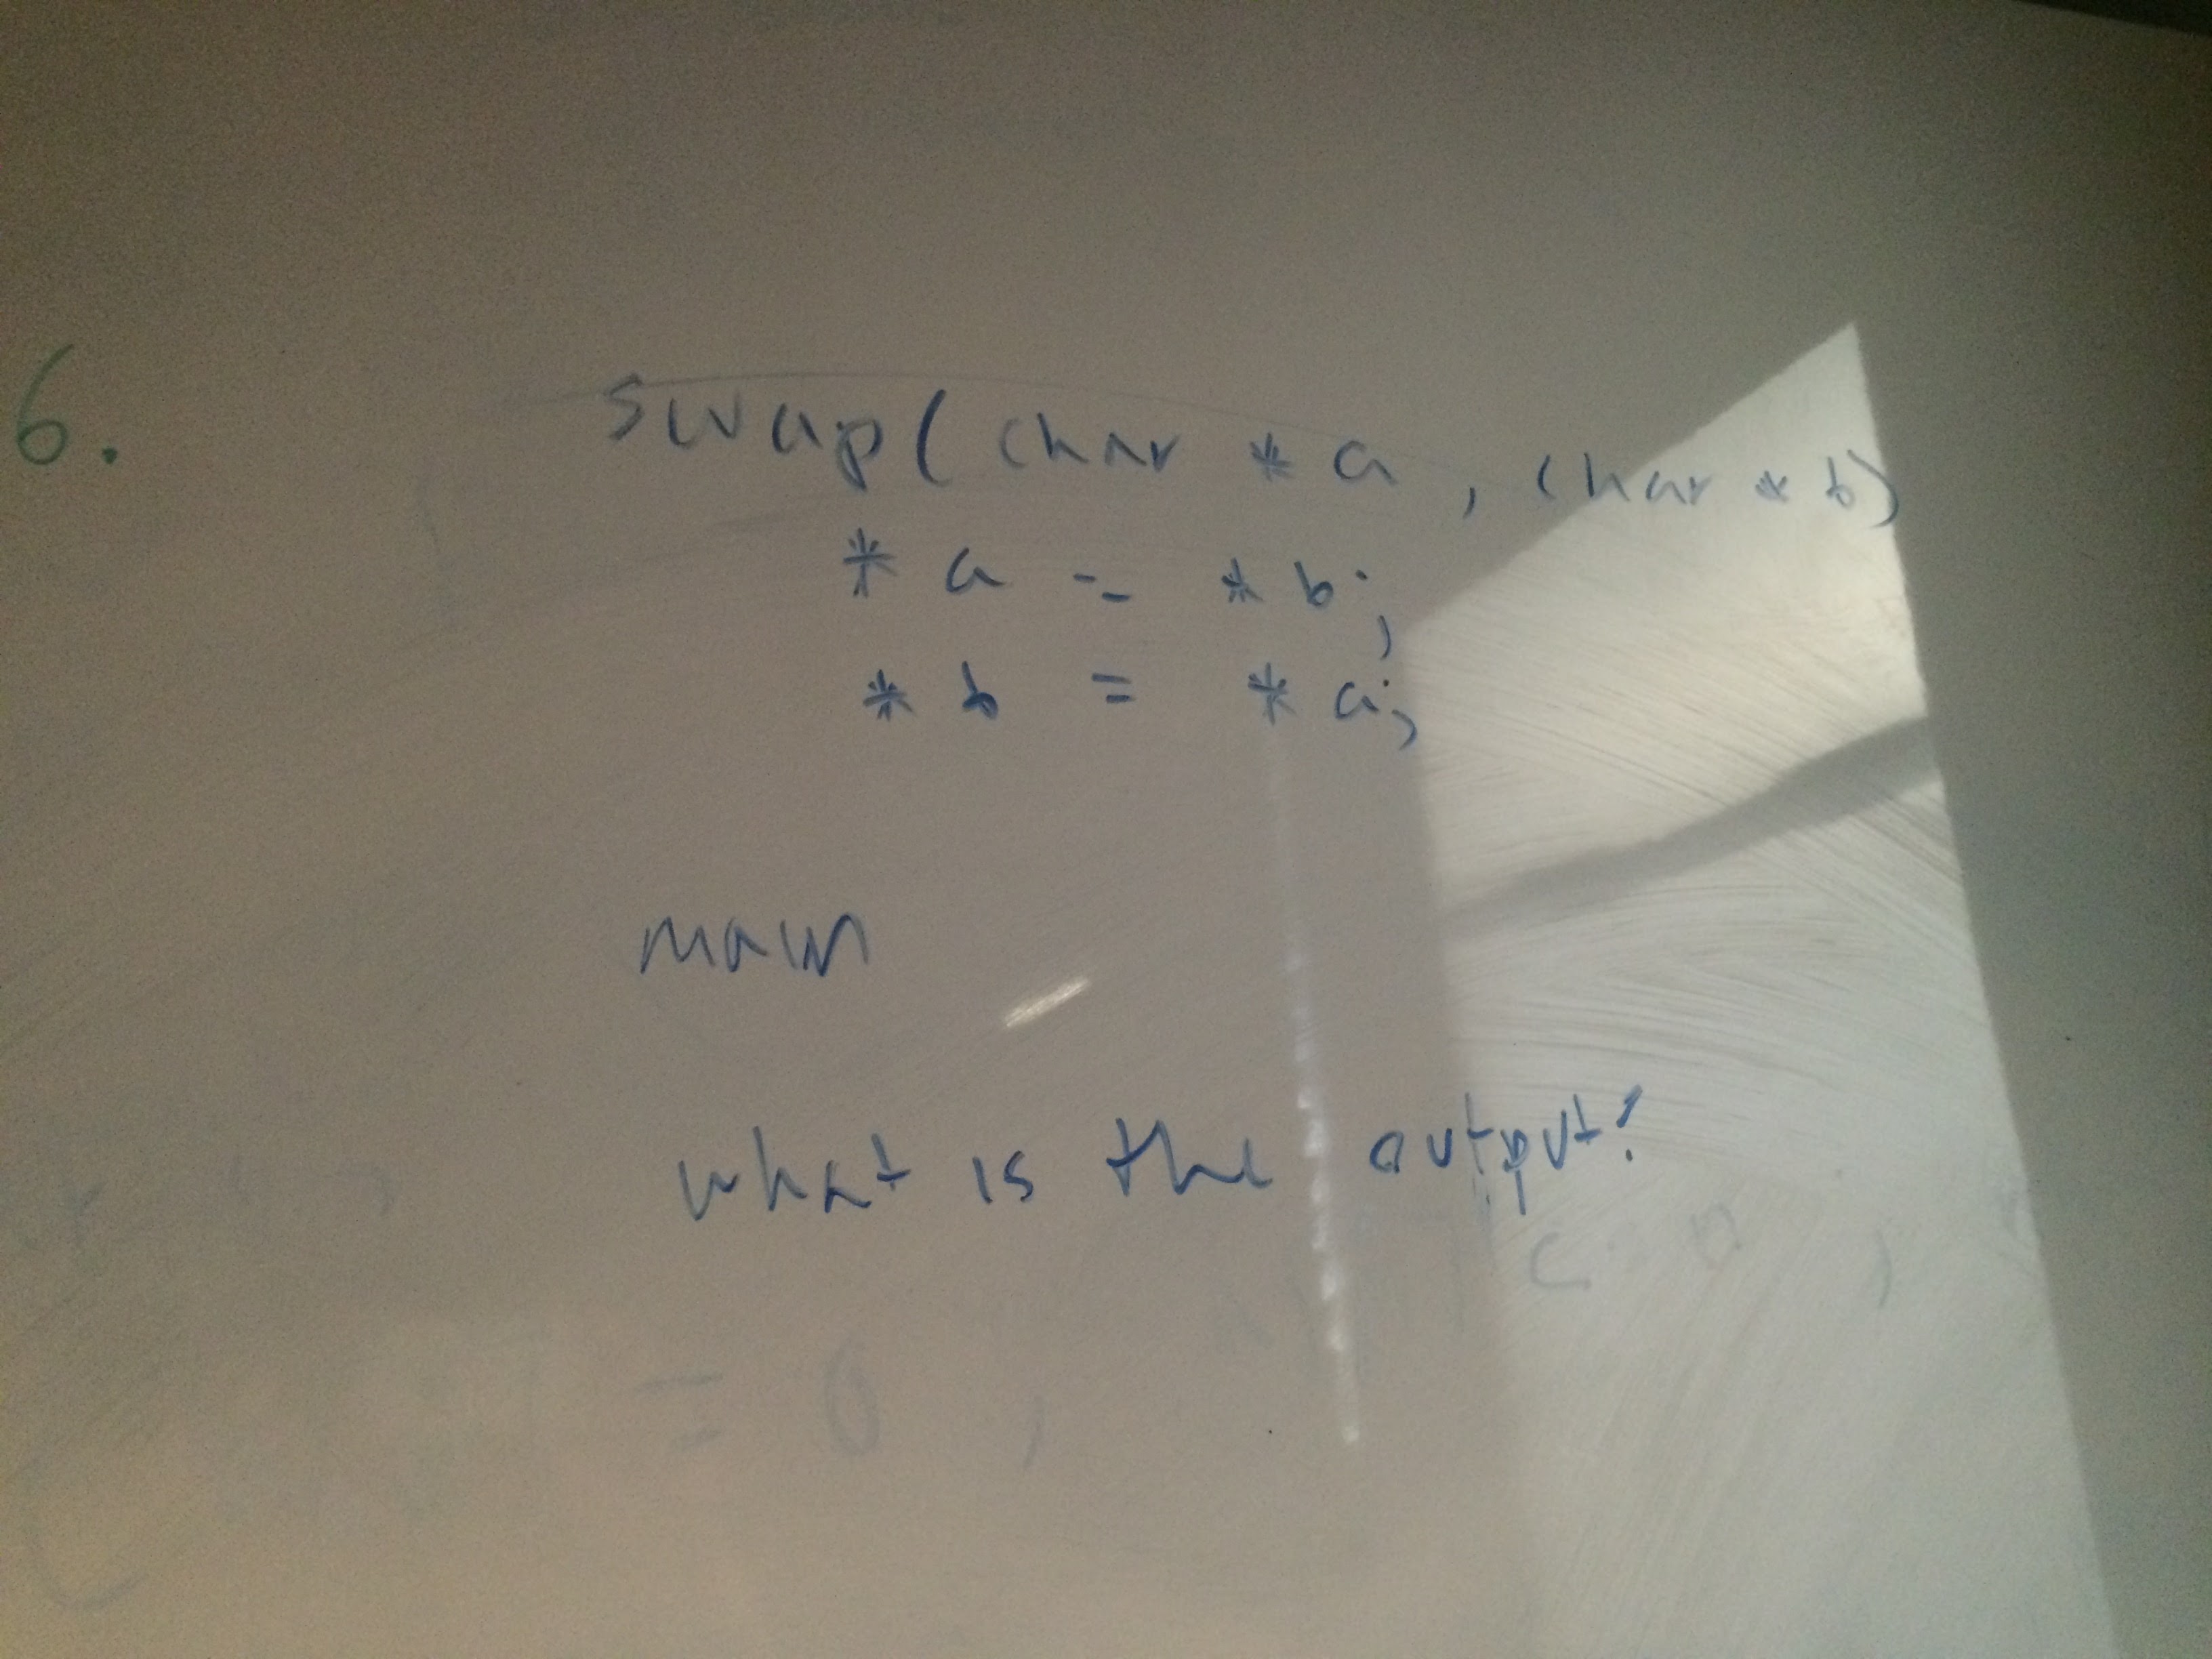 6. swap(char *a, char *b)
*a = *b;
*b = *a;
main
what is the output?
= 0 ,